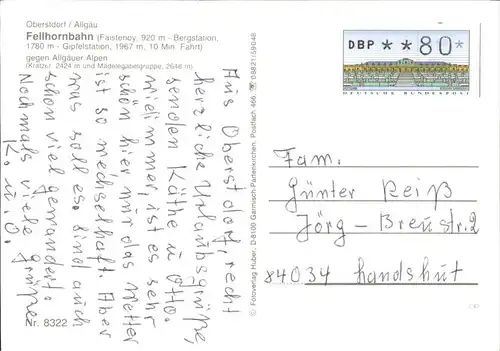 Oberstdorf / Allgäu
Fellhornbahn (Faistenoy, 920 m - Bergstation,
1780 m - Gipfelstation, 1967 m, 10 Min. Fahrt)
gegen Allgäuer Alpen
(Kratzer 2424 m und Mädelegabelgruppe, 2646 m)
Aus Oberstdorf, recht
herzliche Urlaubsgrüße,
senden Käthe u. Otto.
Wie immer ist es sehr
schön hier nur das Wetter
ist so wechselhaft. Aber
was soll es. Sind auch
schon viel gewandert.
Nochmals viele Grüße
K. u. O.
Nr. 8322
© Fotoverlag Huber, D-8100 Garmisch-Partenkirchen, Postfach 466, ☏ 08821/59048
DBP **80*
DEUTSCHE BUNDESPOST
Fam.
Günter Reiß
Jörg-Breustr. 2
84034 Landshut